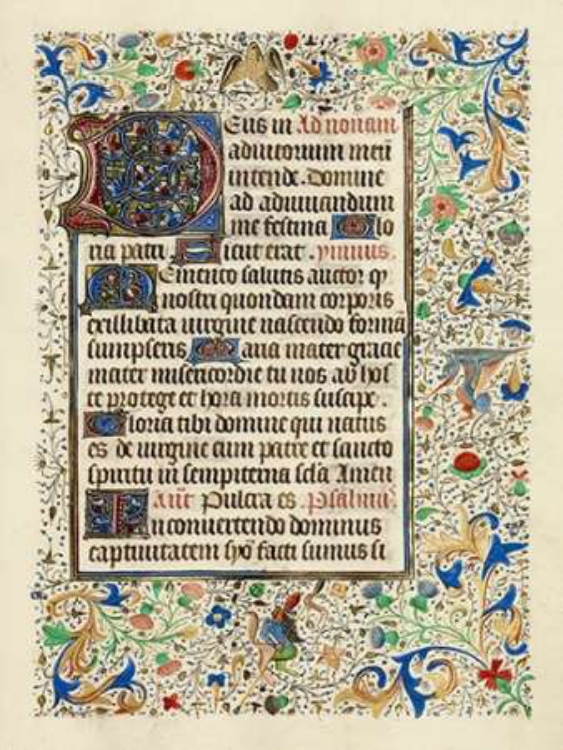 Deus in Ad nonam
adiutorium meū
intende. Domine
ad adiuuandum
me festina Glo
ria patri Sicut erat. ymnus.
Memento salutis auctor q̄
nostri quondam corporis
ex illibata uirgine nascendo formā
sumpseris Maria mater gracie
mater misericordie tu nos ab hos
te protege et hora mortis suscipe.
Gloria tibi domine qui natus
es de uirgine cum patre et sancto
spiritu in sempiterna scl̄a Amen
Pulcra es
In conuertendo dominus
captiuitatem syō facti sumus si